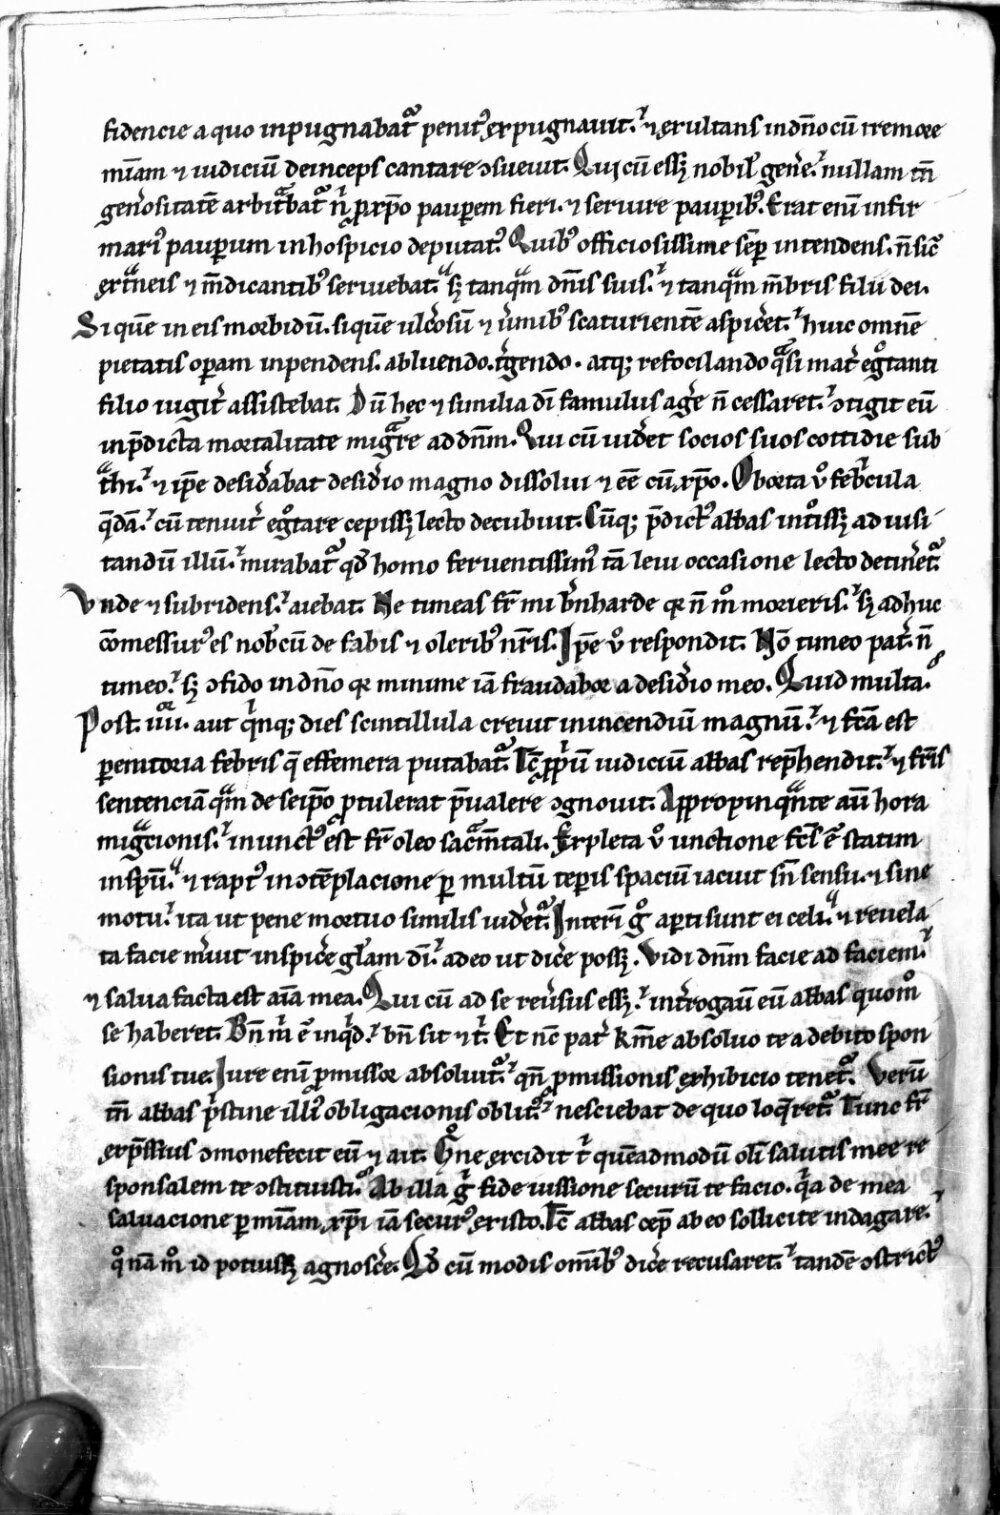 fidencie a quo inpugnabat᷑ penitꝰ expugnauit. ⁊ exultans in dn̄o cū tremore
mīam ⁊ iudiciū deinceps cantare ↄsueuit. Qui cū eēt nobil̕ geneꝛ̕ nullam tn̄
gen̕ositatē arbitᷓbat᷑ n̄ ꝓ xp̄o paup̱em fieri. ⁊ seruire paup̱ibꝰ. Erat enī infir
marꝰ paup̱um in hospicio deputatꝰ. Quibꝰ officiosissime sēp intendens. n̄ sic̄
extᷓneis ⁊ mēdicantibꝰ seruiebat. sꝫ tanqᷓm dn̄is suis. ⁊ tanqᷓm mēbris filii dei.
Si quē in eis morbidū. si quē ulc̕osū ⁊ u̕mibꝰ scaturientē aspic̕et. huic omnē
pietatis op̱am inpendens. abluendo. t̕gendo. atqꝫ refocilando qᷓsi mat̕ egͦtanti
filio iugit̕ assistebat. Dū hec ⁊ similia dī famulus ag̕e n̄ cessaret. ↄtigit eū
in p̄dicta mortalitate migᷓre ad dn̄m. Qui cū uid̕et socios suos cottidie sub
tᷓhi. ⁊ ip̄e desid̕abat desid̕io magno dissolui ⁊ eē cū xp̄o. Oborta uͦ̕ feb̕cula
q̄dā. cū tenuit̕ egͦtare cepissꝫ lecto decubuit. Cūqꝫ p̄dictꝰ abbas int̕issꝫ ad uisi
tandū illū. mirabat᷑ qd̕ homo feruentissimꝰ tā leui occasione lecto detin̕et᷑.
Vnde ⁊ subridens. aiebat. Ne timeas fr̄ mi b̕nharde qꝛ n̄ mͦ morieris. sꝫ adhuc
cōmessurꝰ es nobcū de fabis ⁊ oleribꝰ nr̄is. Ip̄e uͦ̕ respondit. Nō timeo pat̕ n̄
timeo. sꝫ ↄfido in dn̄o qꝛ minime iā fraudabor a desid̕io meo. Quid multa.
Post .iiii. aut qⁱnqꝫ dies scintillula creuit in incendiū magnū. ⁊ fc̄a est
p̱emtoria febris q̄ effemera putabat᷑. Tc̄ ꝓpⁱū iudiciū abbas rep̄hendit. ⁊ fr̄is
sentenciā qᷓm de seip̄o ꝓtulerat p̄ualere ↄgnouit. Appropinqᷓnte aū hora
migᷓcionis. inunctꝰ est fr̄ oleo sacᷓm̄tali. Expleta uͦ̕ unctione fcl̕s ē statim
in sp̄u. ⁊ raptꝰ in ↄtēplacione p̱ multū tēp̱is spaciū iacuit sn̄ sensu. ⁊ sine
motu. ita ut pene mortuo similis uid̕et᷑. Interī gͦ ap̱ti sunt ei celi. ⁊ reuela
ta facie m̕uit inspic̕e gl̄am dī. adeo ut dic̕e possꝫ. Vidi dn̄m facie ad faciem.
⁊ salua facta est aīa mea. Qui cū ad se reu̕sus essꝫ. int̕rogauit eū abbas quomͦ
se haberet. Bn̄ mⁱ ē inqⁱd. bn̄ sit ⁊ tⁱ. Et nc̄ pat̕ k̄me absoluo te a debito spon
sionis tue. Iure enī ꝓmissor absoluit᷑. qn̄ ꝓmissionis exhibicio tenet᷑. Verū
tn̄ abbas pⁱstine illiꝰ obligacionis oblitꝰ. nesciebat de quo loq̕ret᷑. Tunc fr̄
exp̄ssius ↄmonefecit eū ⁊ ait. Gͦne excidit tⁱ quēadmodū olī salutis mee re
sponsalem te ↄstituisti. Ab illa gⁱ fide iussione securū te facio. qⁱa de mea
saluacione p̱ mīam xp̄i iā securꝰ existo. Tc̄ abbas cep̄ ab eo sollicite indagare.
qͦnam mͦ id potuissꝫ agnosc̕e. Qd̕ cū modis om̄ibꝰ dic̕e recusaret. tandē ↄstrictꝰ